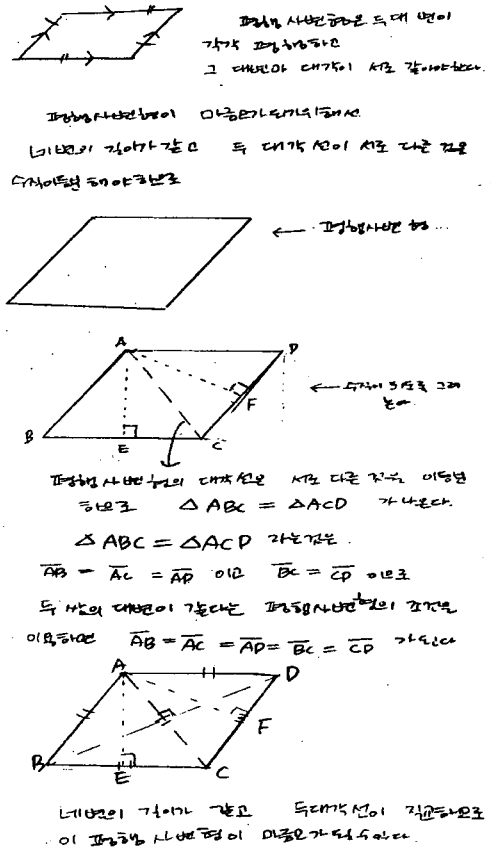 평행사변형은 두 대 변이
각각 평행하고
그 대변과 대각이 서로 같아야한다.
평행사변형이 마름모가 되기위해선
네변의 길이가 같고 두 대각선이 서로 다른 것을
수직이등분 해야하므로
← 평행사변 형 ...
A
D
← 수직이 되도록 그려
놓아.
F
B
E
C
평행사변형의 대각선은 서로 다른 것을 이등분
하므로 △ABC = △ACD 가 나온다.
△ABC = △ACD 라는것은
AB = AC = AD 이고 BC = CD 이므로
두 쌍의 대변이 같다는 평행사변형의 조건을
이용하면 AB = AC = AD = BC = CD 가 된다
A
D
F
B
E
C
네변의 길이가 같고 두대각선이 직교하므로
이 평행 사변형이 마름모가 될수있다.